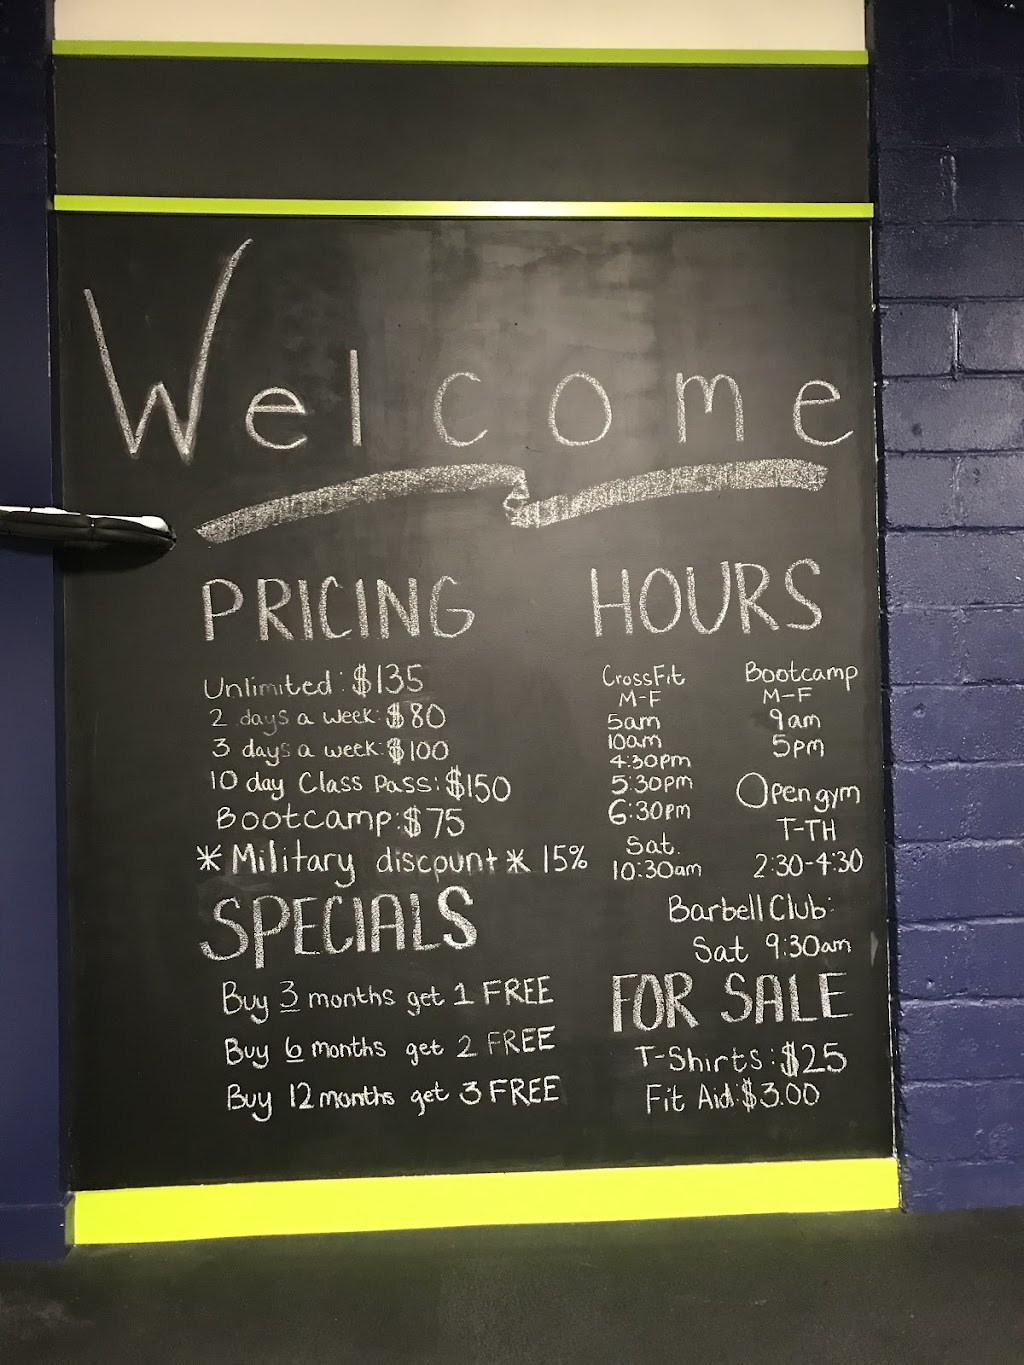 Welcome
PRICING
Unlimited: $135
2 days a week: $80
3 days a week: $100
10 day Class Pass: $150
Bootcamp: $75
*Military discount* 15%
SPECIALS
Buy 3 months get 1 FREE
Buy 6 months get 2 FREE
Buy 12 months get 3 FREE
HOURS
CrossFit
M-F
5am
10am
4:30pm
5:30pm
6:30pm
Sat.
10:30am
Bootcamp
M-F
9am
5pm
Open gym
T-TH
2:30-4:30
Barbell Club:
Sat 9:30am
FOR SALE
T-Shirts: $25
Fit Aid: $3.00